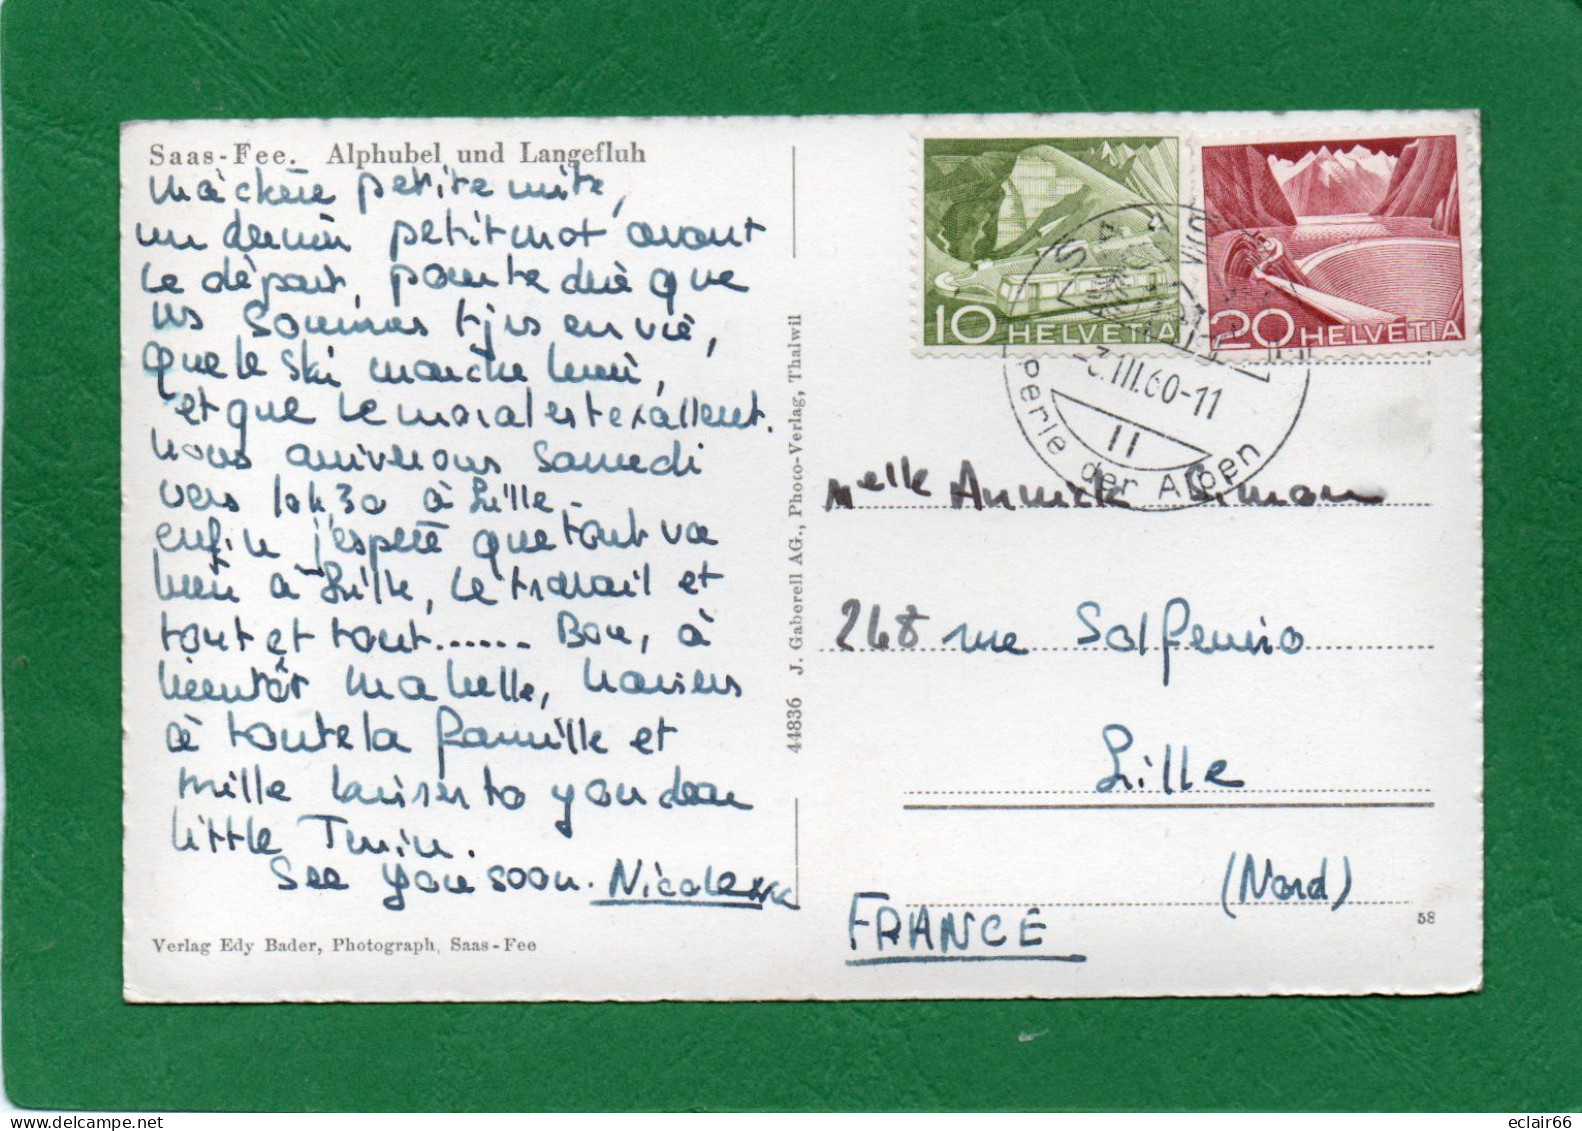 Saas-Fee. Alphubel und Langefluh
Ma chère petite mite,
un dernier petit mot avant
le départ, pour te dire que
ns sommes tjrs en vie,
que le ski marche bien,
et que le moral est excellent.
Nous arriverons Samedi
vers 10h30 à Lille.
Enfin j'espère que tout va
bien à Lille, le travail et
tout et tout...... Bon, à
bientôt ma belle, baisers
à toute la famille et
mille baisers to you dear
little Twin.
See you soon. Nicole
Verlag Edy Bader, Photograph, Saas-Fee
44836 J. Gaberell AG., Photo-Verlag, Thalwil
10 HELVETIA
20 HELVETIA
III.60-11
11
Perle der Alpen
Melle Annick
248 rue Solferino
Lille
(Nord)
FRANCE
58
eclair66